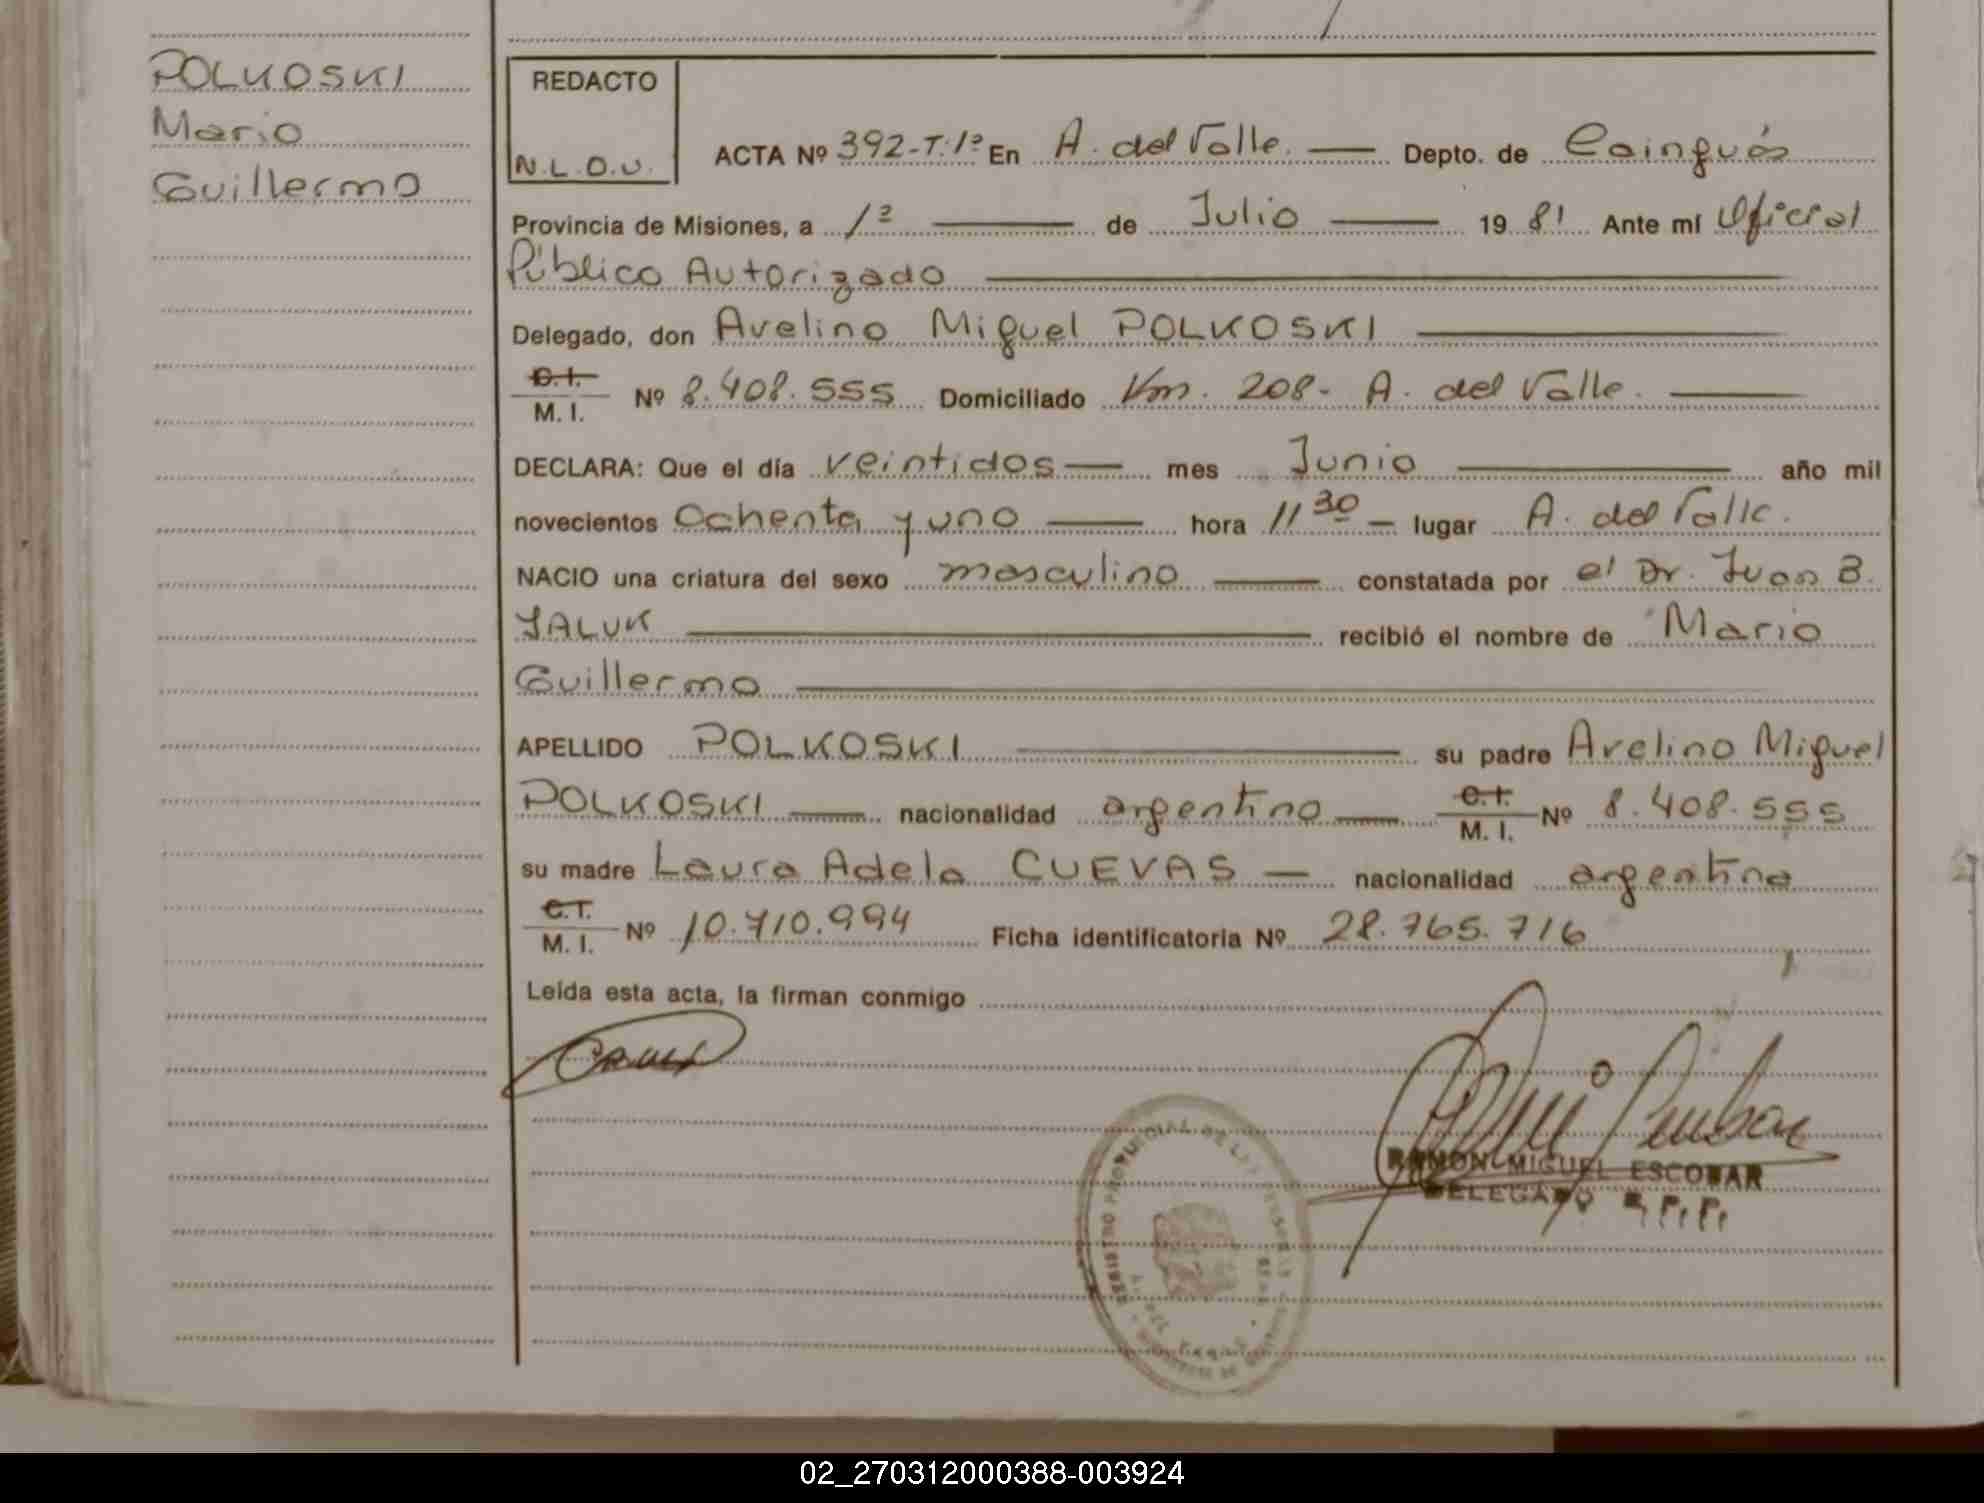 POLKOSKI
Mario
Guillermo
REDACTO
N.L.O.U.
ACTA Nº 392-T.1º En A. del Valle. Depto. de Cainguás
Provincia de Misiones, a 1º de Julio 1981 Ante mí Oficial
Público Autorizado
Delegado, don Avelino Miguel POLKOSKI
C.I.
M. I. Nº 8.408.555 Domiciliado Km. 208- A. del Valle.
DECLARA: Que el día veintidos mes Junio año mil
novecientos Ochenta y uno hora 11 30 lugar A. del Valle.
NACIO una criatura del sexo masculino constatada por el Dr. Juan B.
YALUK recibió el nombre de Mario
Guillermo
APELLIDO POLKOSKI su padre Avelino Miguel
POLKOSKI nacionalidad argentino C.I. M. I. Nº 8.408.555
su madre Laura Adela CUEVAS nacionalidad argentina
C.I.
M. I. Nº 10.710.994 Ficha identificatoria Nº 28.765.716
Leída esta acta, la firman conmigo
RAMON MIGUEL ESCOBAR
DELEGADO R.P.P.
REGISTRO PROVINCIAL DE LAS PERSONAS
02_270312000388-003924